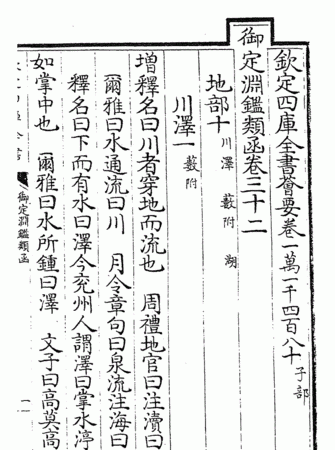 欽定四庫全書薈要卷一萬一千四百八十 子部
御定淵鑑類函卷三十二
地部十 川澤 藪附 湖
川澤一 藪附
增釋名曰川者穿地而流也 周禮地官曰注瀆曰
爾雅曰水通流曰川 月令章句曰泉流注海曰
釋名曰下而有水曰澤今兖州人謂澤曰掌水渟
如掌中也 爾雅曰水所鍾曰澤 文子曰高莫高
御定淵鑑類函
一